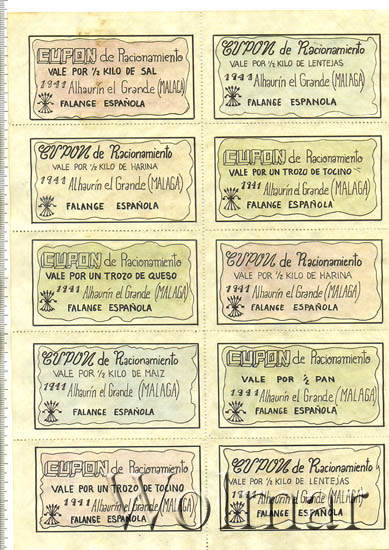 CUPON de Racionamiento
VALE POR ½ KILO DE SAL
1941 Alhaurín el Grande (MALAGA)
FALANGE ESPAÑOLA
CUPON de Racionamiento
VALE POR ½ KILO DE LENTEJAS
1941 Alhaurín el Grande (MALAGA)
FALANGE ESPAÑOLA
CUPON de Racionamiento
VALE POR ½ KILO DE HARINA
1941 Alhaurín el Grande (MALAGA)
FALANGE ESPAÑOLA
CUPON de Racionamiento
VALE POR UN TROZO DE TOCINO
1941 Alhaurín el Grande (MALAGA)
FALANGE ESPAÑOLA
CUPON de Racionamiento
VALE POR UN TROZO DE QUESO
1941 Alhaurín el Grande (MALAGA)
FALANGE ESPAÑOLA
CUPON de Racionamiento
VALE POR ½ KILO DE HARINA
1941 Alhaurín el Grande (MALAGA)
FALANGE ESPAÑOLA
CUPON de Racionamiento
VALE POR ½ KILO DE MAIZ
1941 Alhaurín el Grande (MALAGA)
FALANGE ESPAÑOLA
CUPON de Racionamiento
VALE POR ½ PAN
1941 Alhaurín el Grande (MALAGA)
FALANGE ESPAÑOLA
CUPON de Racionamiento
VALE POR UN TROZO DE TOCINO
1941 Alhaurín el Grande (MALAGA)
FALANGE ESPAÑOLA
CUPON de Racionamiento
VALE POR ½ KILO DE LENTEJAS
1941 Alhaurín el Grande (MALAGA)
FALANGE ESPAÑOLA
Wolmar